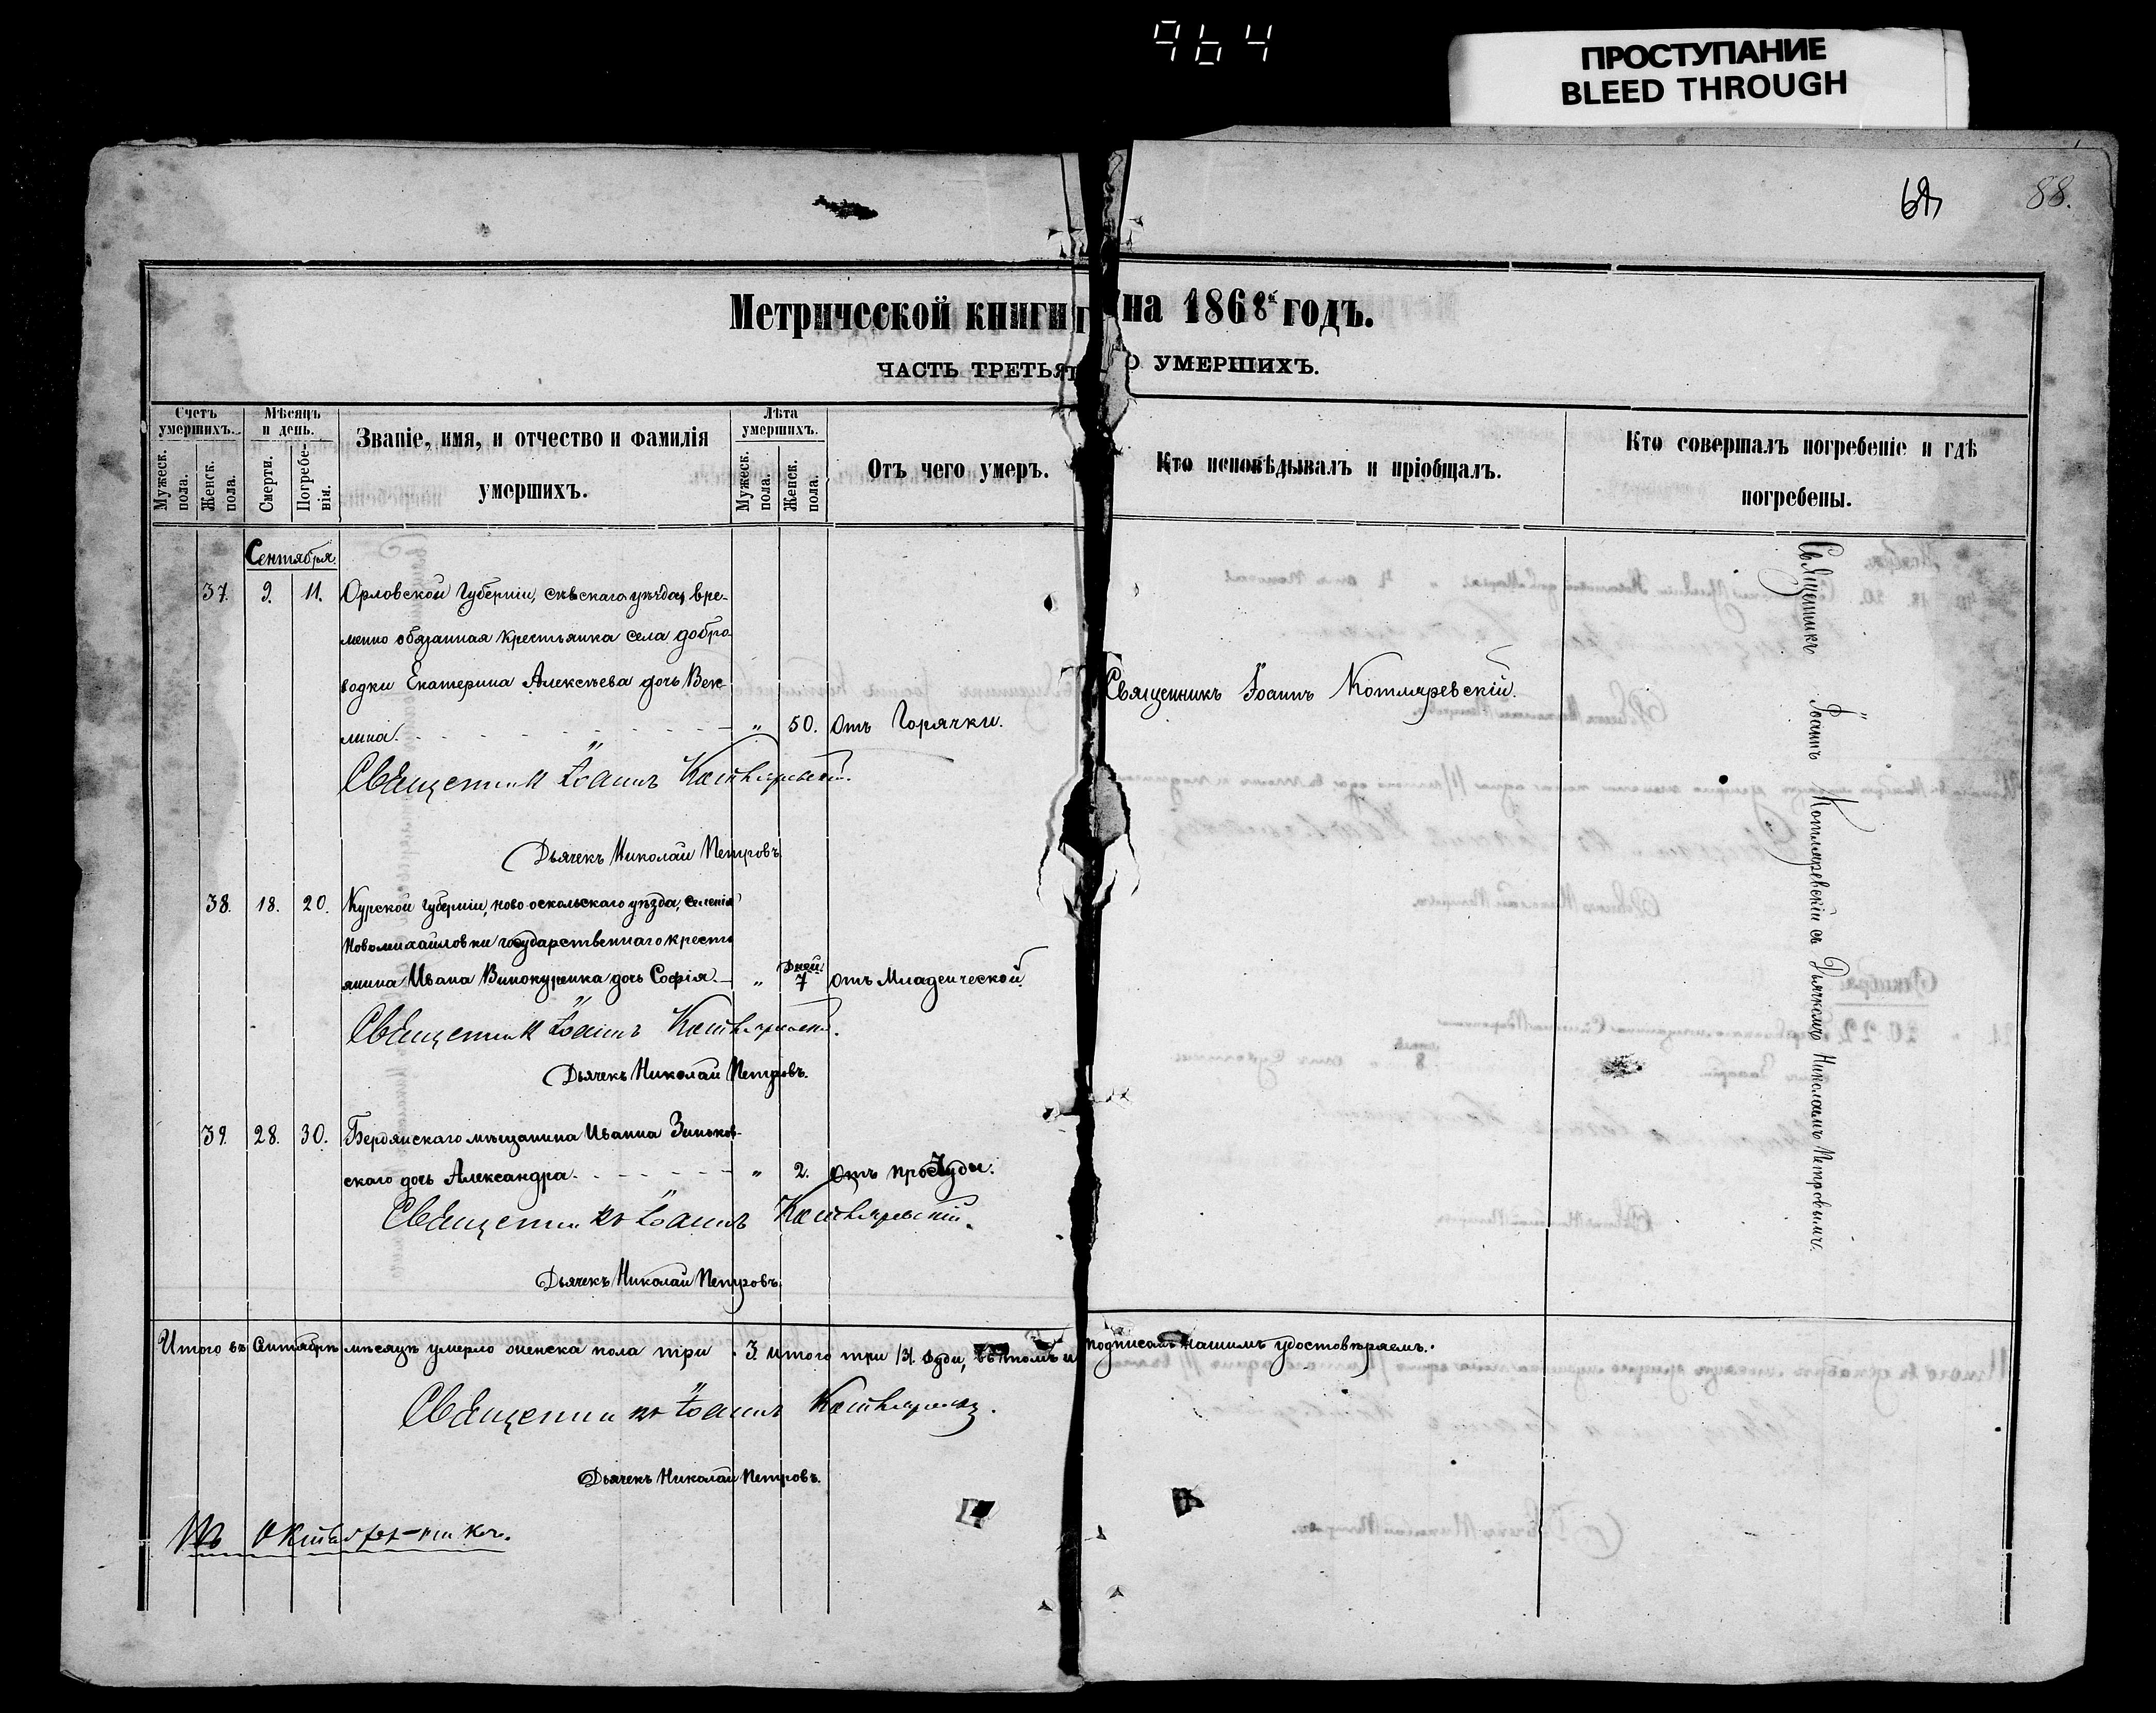 964
ПРОСТУПАНИЕ
BLEED THROUGH
88.
Метрической книги на 1868й годъ.
ЧАСТЬ ТРЕТЬЯ О УМЕРШИХЪ.
Счетъ умершихъ.
Мѣсяцъ и день.
Званіе, имя, и отчество и фамилія умершихъ.
Лѣта умершихъ.
Отъ чего умеръ.
Кто исповѣдывалъ и пріобщалъ.
Кто совершалъ погребеніе и гдѣ погребены.
Мужеск. пола.
Женск. пола.
Смерти.
Погребенія.
Мужеск. пола.
Женск. пола.
Сентября.
37. 9. 11. Орловской Губерніи, сѣвскаго уѣзда, вре-
менно обязанная крестьянка села добро-
водки Екатерина Алексѣева дочь Век-
лина. " 50. Отъ Горячки.
Священникъ Іоаннъ Котляревскій.
Священникъ Іоаннъ Котляревскій.
Дьячекъ Николай Петровъ.
38. 18. 20. Курской губерніи, ново-оскольскаго уѣзда, селенія
Новомихайловки государственнаго кресть
янина Ивана Винокурника дочь Софія. " Дней 7 отъ Младенческой.
Священникъ Іоаннъ Котляревскій.
Дьячекъ Николай Петровъ.
39. 28. 30. Бердянскаго мѣщанина Иванна Зиньков-
скаго дочь Александра. " 2. Отъ простуды.
Священникъ Іоаннъ Котляревскій.
Дьячекъ Николай Петровъ.
Священникъ Іоаннъ Котляревскій съ Дьячкомъ Николаемъ Петровымъ.
Итого въ Сентябрѣ мѣсяцѣ умерло женска пола три 3. итого три /3/. душы, въ томъ и подписомъ нашимъ удостовѣряемъ.
Священникъ Іоаннъ Котляревскій.
Дьячекъ Николай Петровъ.
Въ Октябрѣ-никъ.